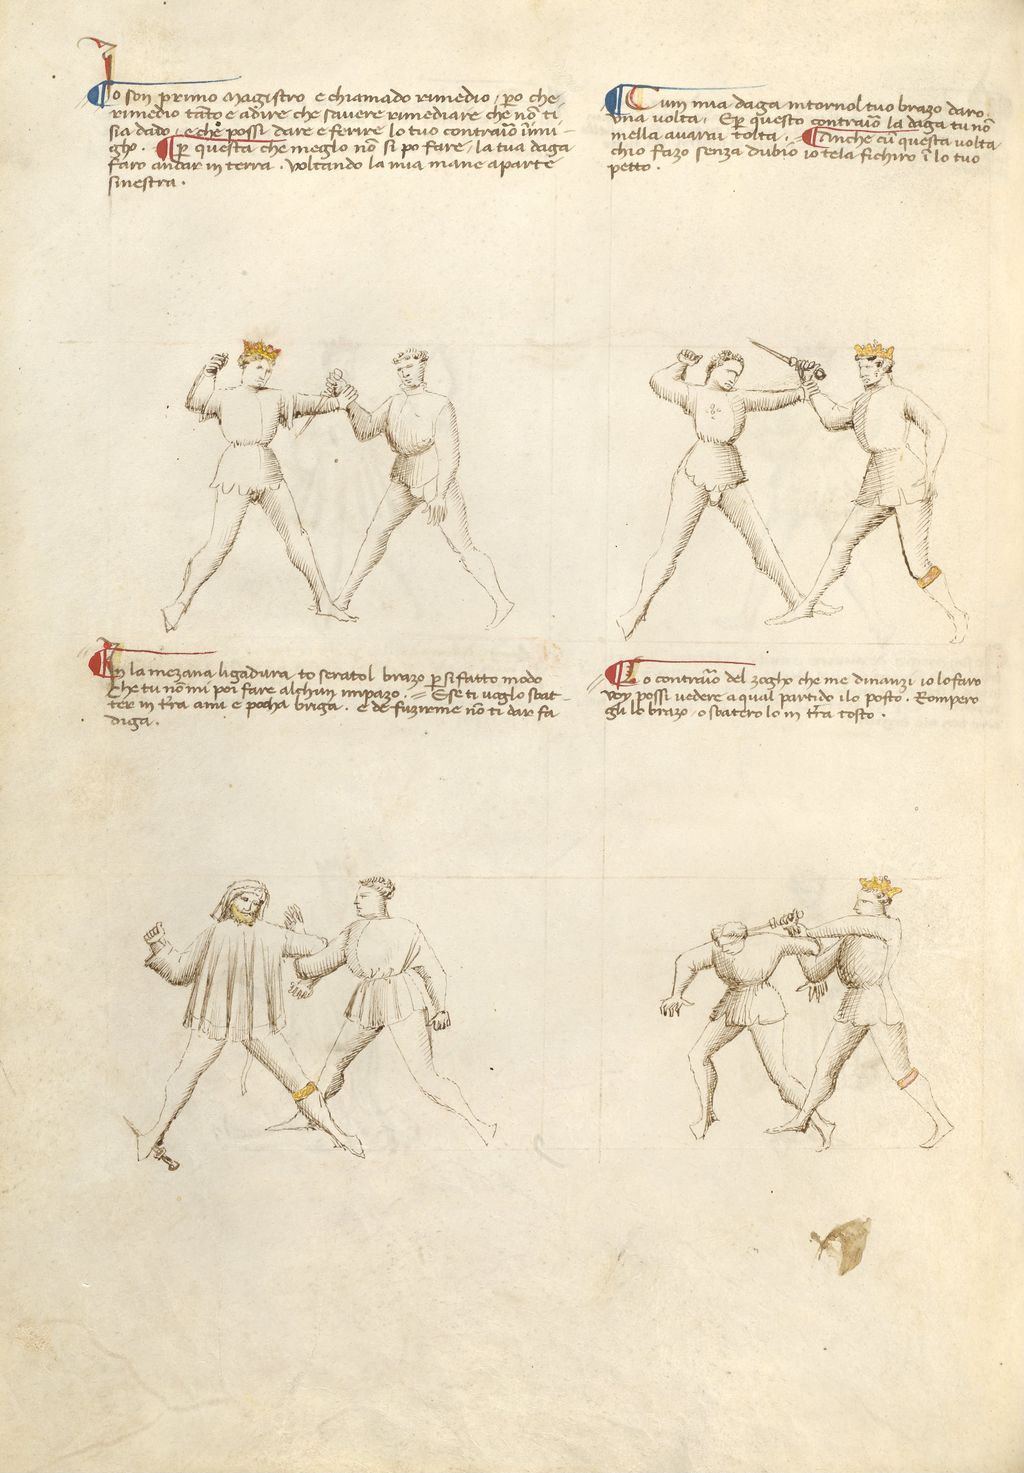 Io son primo Magistro e chiamado rimedio, p̱o che
rimedio tāto e adire che savere rimediare che nō ti
sia dado, e che possi dare e ferire lo tuo contraiō inimi-
gho. ¶ P̱ questa che meglo nō si po fare, la tua daga
faro andar in terra. Voltando la mia mane aparte
sinestra.
Cum mia daga intorno 'l tuo brazo daro
una volta. E p̱ questo contraiō la daga tu nō
mella avarai tolta. ¶ Anche cū questa volta
chio fazo senza dubio io tela fichiro ī lo tuo
petto.
In la mezana ligadura to serato 'l brazo p̱ si fatto modo
Che tu nō mi poi fare alchun impazo. E se ti voglo sbat-
ter in tr̄a ami e pocha briga. e de fuzirme nō ti dar fa
diga.
Lo contraiō del zogho che me dinanzi io lo faro
voy possi vedere a qual partido i lo posto. Rompero
gli lo brazo, o sbatero lo in tr̄a tosto.